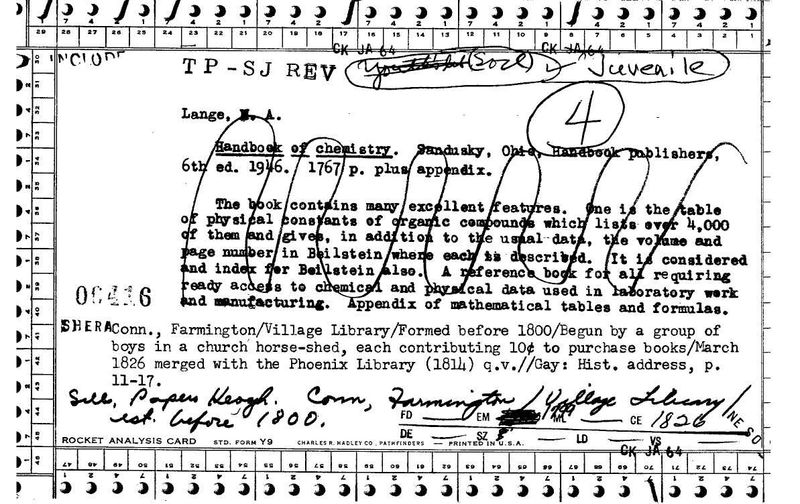 INCLUDE
CK JA 64
CK JA 64
TP-SJ REV (Socl) Juvenile
4
Lange, N. A.
Handbook of chemistry. Sandusky, Ohio, Handbook publishers,
6th ed. 1946. 1767 p. plus appendix.
The book contains many excellent features. One is the table
of physical constants of organic compounds which lists over 4,000
of them and gives, in addition to the usual data, the volume and
page number in Beilstein where each is described. It is considered
and index for Beilstein also. A reference book for all requiring
ready access to chemical and physical data used in laboratory work
and manufacturing. Appendix of mathematical tables and formulas.
00416
SHERA Conn., Farmington/Village Library/Formed before 1800/Begun by a group of
boys in a church horse-shed, each contributing 10¢ to purchase books/March
1826 merged with the Phoenix Library (1814) q.v.//Gay: Hist. address, p.
11-17.
Sill, Papers Keogh. Conn, Farmington / Village Library /
est. before 1800.
FD EM 1799 ML CE 1826 /NE SO
DE SZ LD VS
ROCKET ANALYSIS CARD STD. FORM Y9 CHARLES R. HADLEY CO., PATHFINDERS PRINTED IN U.S.A.
CK JA 64